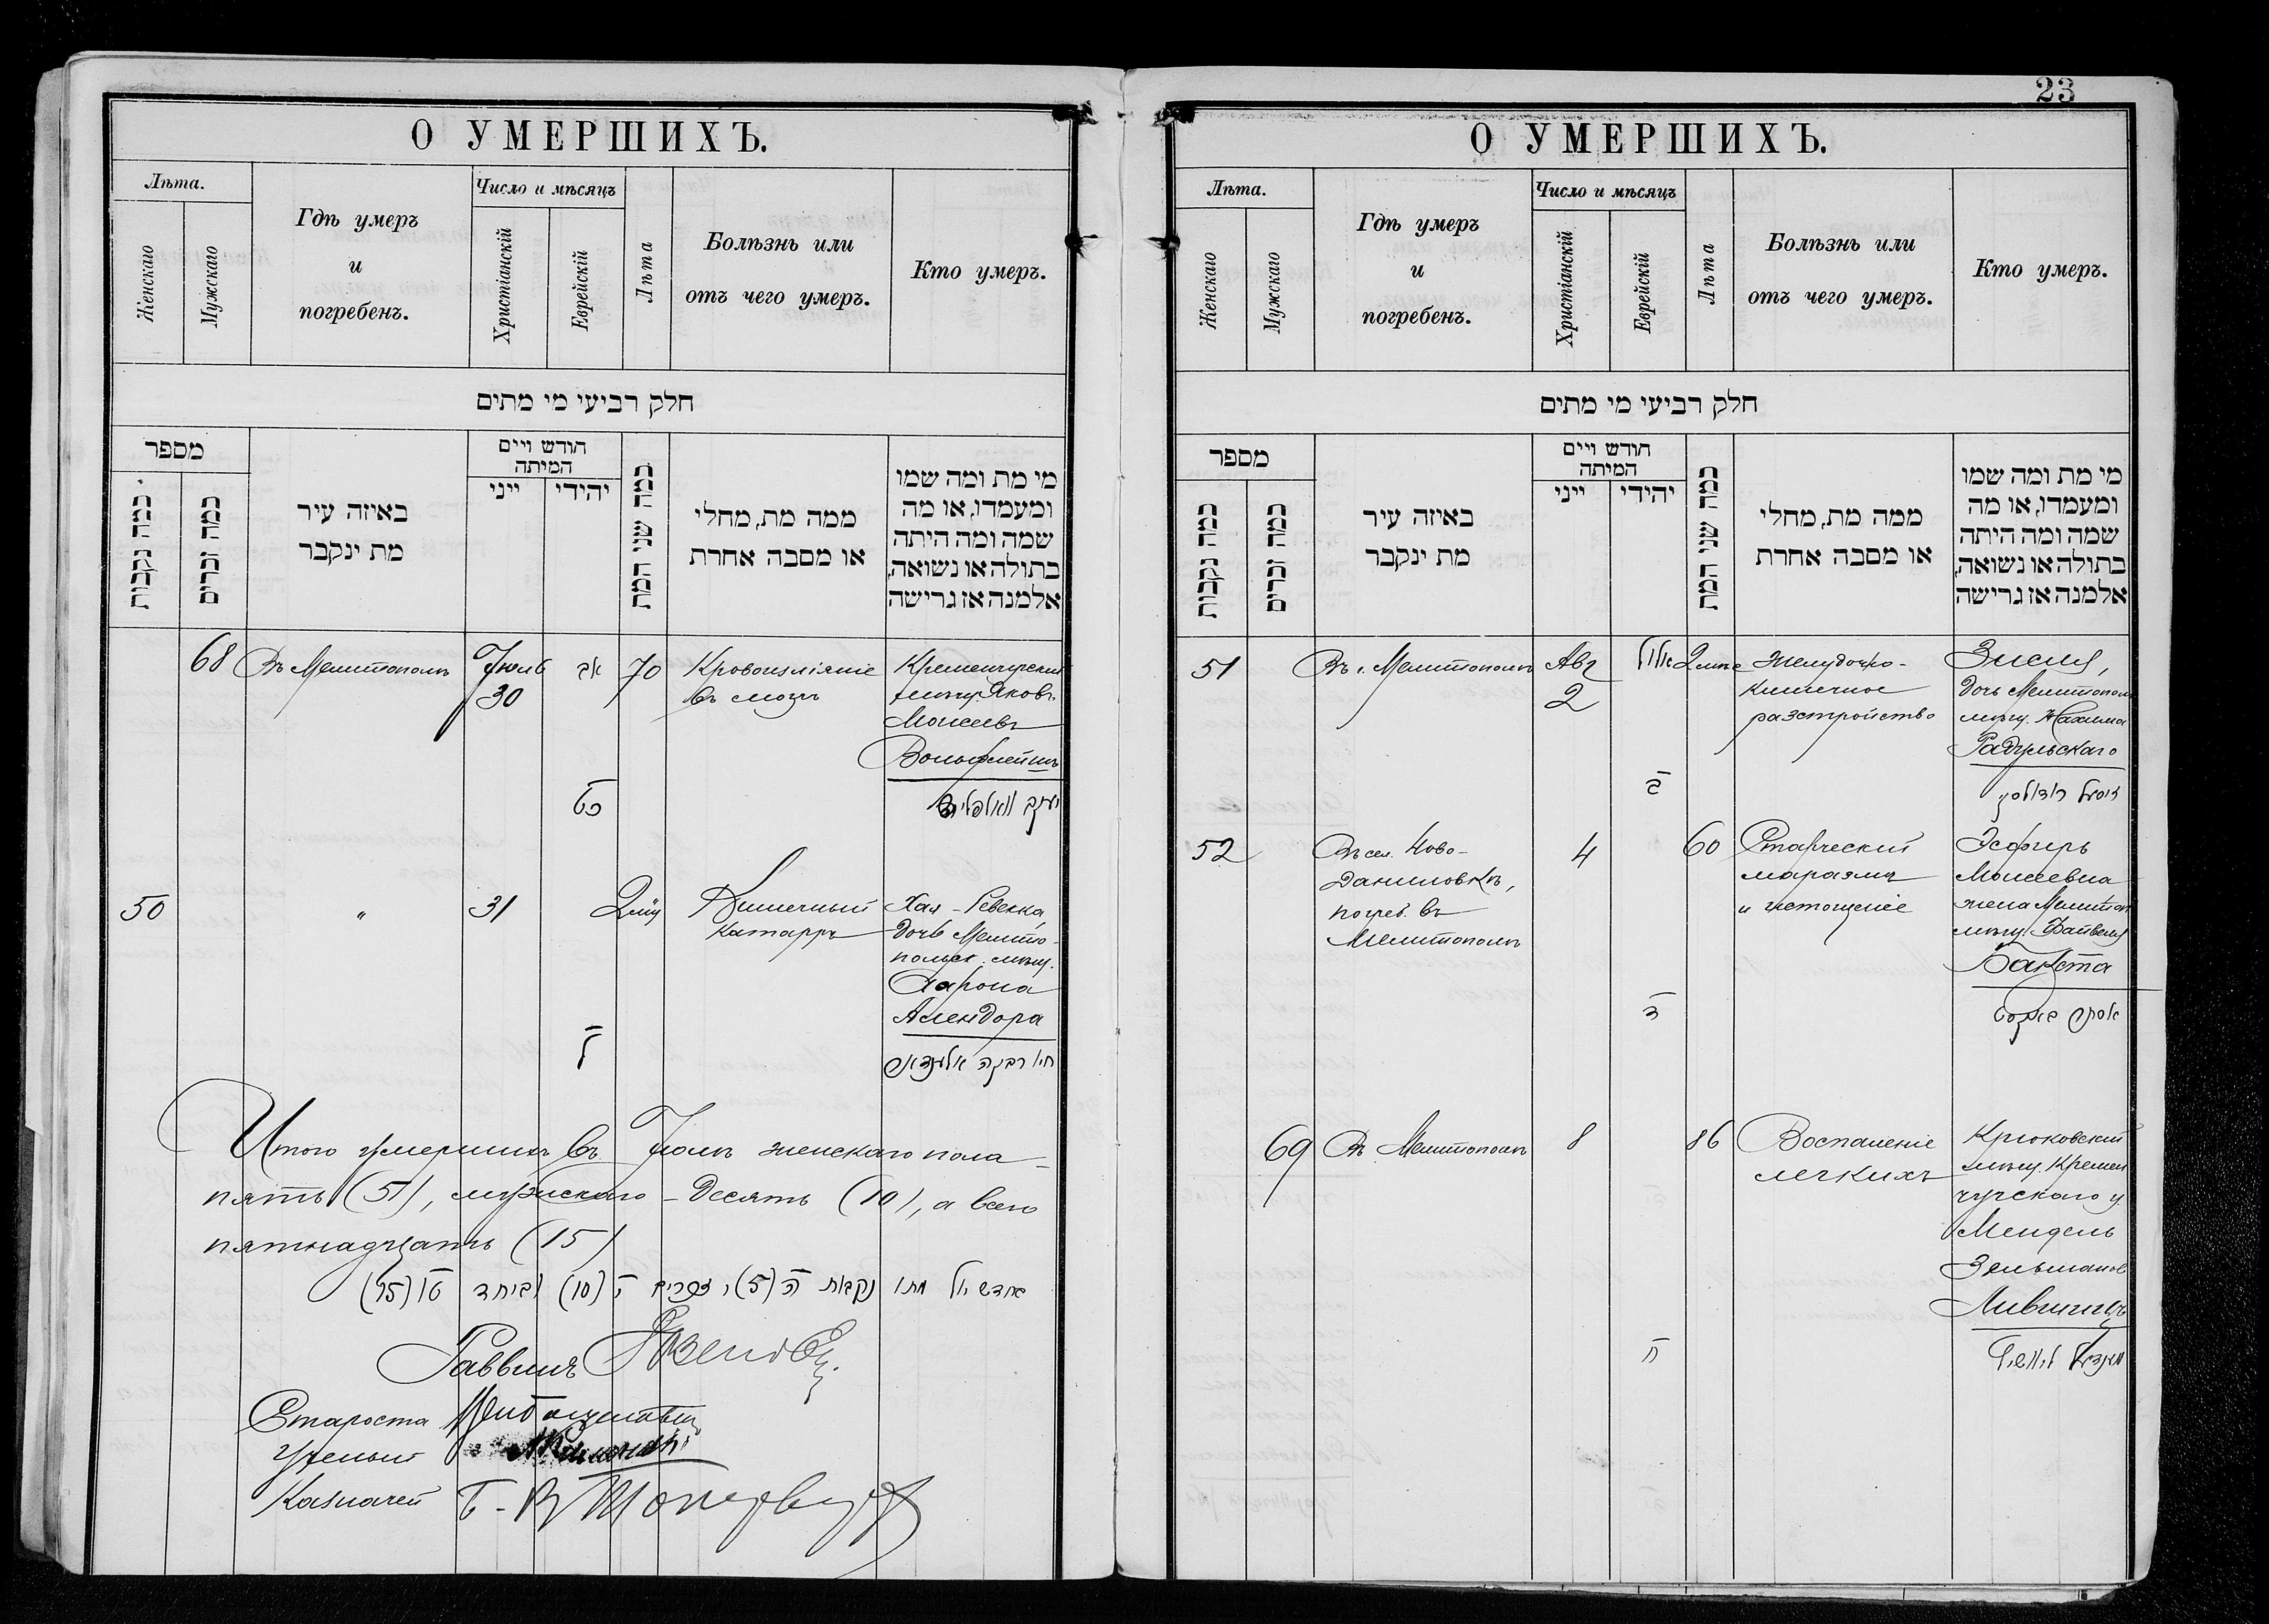 О УМЕРШИХЪ.
Лѣта.
Женскаго
Мужскаго
Гдѣ умеръ
и
погребенъ.
Число и мѣсяцъ
Христіанскій
Еврейскій
Лѣта
Болѣзнь или
отъ чего умеръ.
Кто умеръ.
חלק רביעי מי מתים
מספר
כמה נקבות
כמה זכרים
באיזה עיר
מת ינקבר
חודש ויים
המיתה
ייני
יהידי
כמה שני המת
ממה מת, מחלי
או מסבה אחרת
מי מת ומה שמו
ומעמדו, או מה
שמה ומה היתה
בתולה או נשואה,
אלמנה אז גרישה
68
Въ Мелитополѣ
Іюль
30
אב
כט
70
Кровоизліяніе
въ мозгъ
Кременчугскій
мѣщ. Яковъ
Моисеевъ
Вольфлейшъ
יעקב וואלפלייש
50
"
31
ל
2 мѣс
Кишечный
катарръ
Хая-Ревекка,
дочь Мелито-
польск. мѣщ.
Аарона
Алендора
חיה רבקה
Итого умершихъ въ Іюлѣ женскаго пола -
пять (5), мужскаго - десять (10), а всего
пятнадцать (15)
חדש יולי מתו נקבות ה (5) י (10) וביחד טו (15)
Раввинъ
Староста
Ученый
Казначей
23
О УМЕРШИХЪ.
Лѣта.
Женскаго
Мужскаго
Гдѣ умеръ
и
погребенъ.
Число и мѣсяцъ
Христіанскій
Еврейскій
Лѣта
Болѣзнь или
отъ чего умеръ.
Кто умеръ.
חלק רביעי מי מתים
מספר
כמה נקבות
כמה זכרים
באיזה עיר
מת ינקבר
חודש ויים
המיתה
ייני
יהידי
כמה שני המת
ממה מת, מחלי
או מסבה אחרת
מי מת ומה שמו
ומעמדו, או מה
שמה ומה היתה
בתולה או נשואה,
אלמנה אז גרישה
51
Въ г. Мелитополѣ
Авг
2
אלול
ב
Желудочно-
кишечное
разстройство
Зисля,
дочь Мелитопол
мѣщ. Нахима
Радульскаго
זיסל ראדולסקי
52
Въ сел. Ново-
Даниловкѣ,
погреб. въ
Мелитополѣ
4
ד
60
Старческій
маразмъ
и истощеніе
Эсфирь
Моисеевна
жена Мелитоп
мѣщ. Файвеля
Бакста
אסתר באקסט
69
Въ Мелитополѣ
8
ח
86
Воспаленіе
легкихъ
Крюковскій
мѣщ. Кремен
чугскаго у.
Мендель
Зельманов
Лившицъ
מענדל ליוושיץ